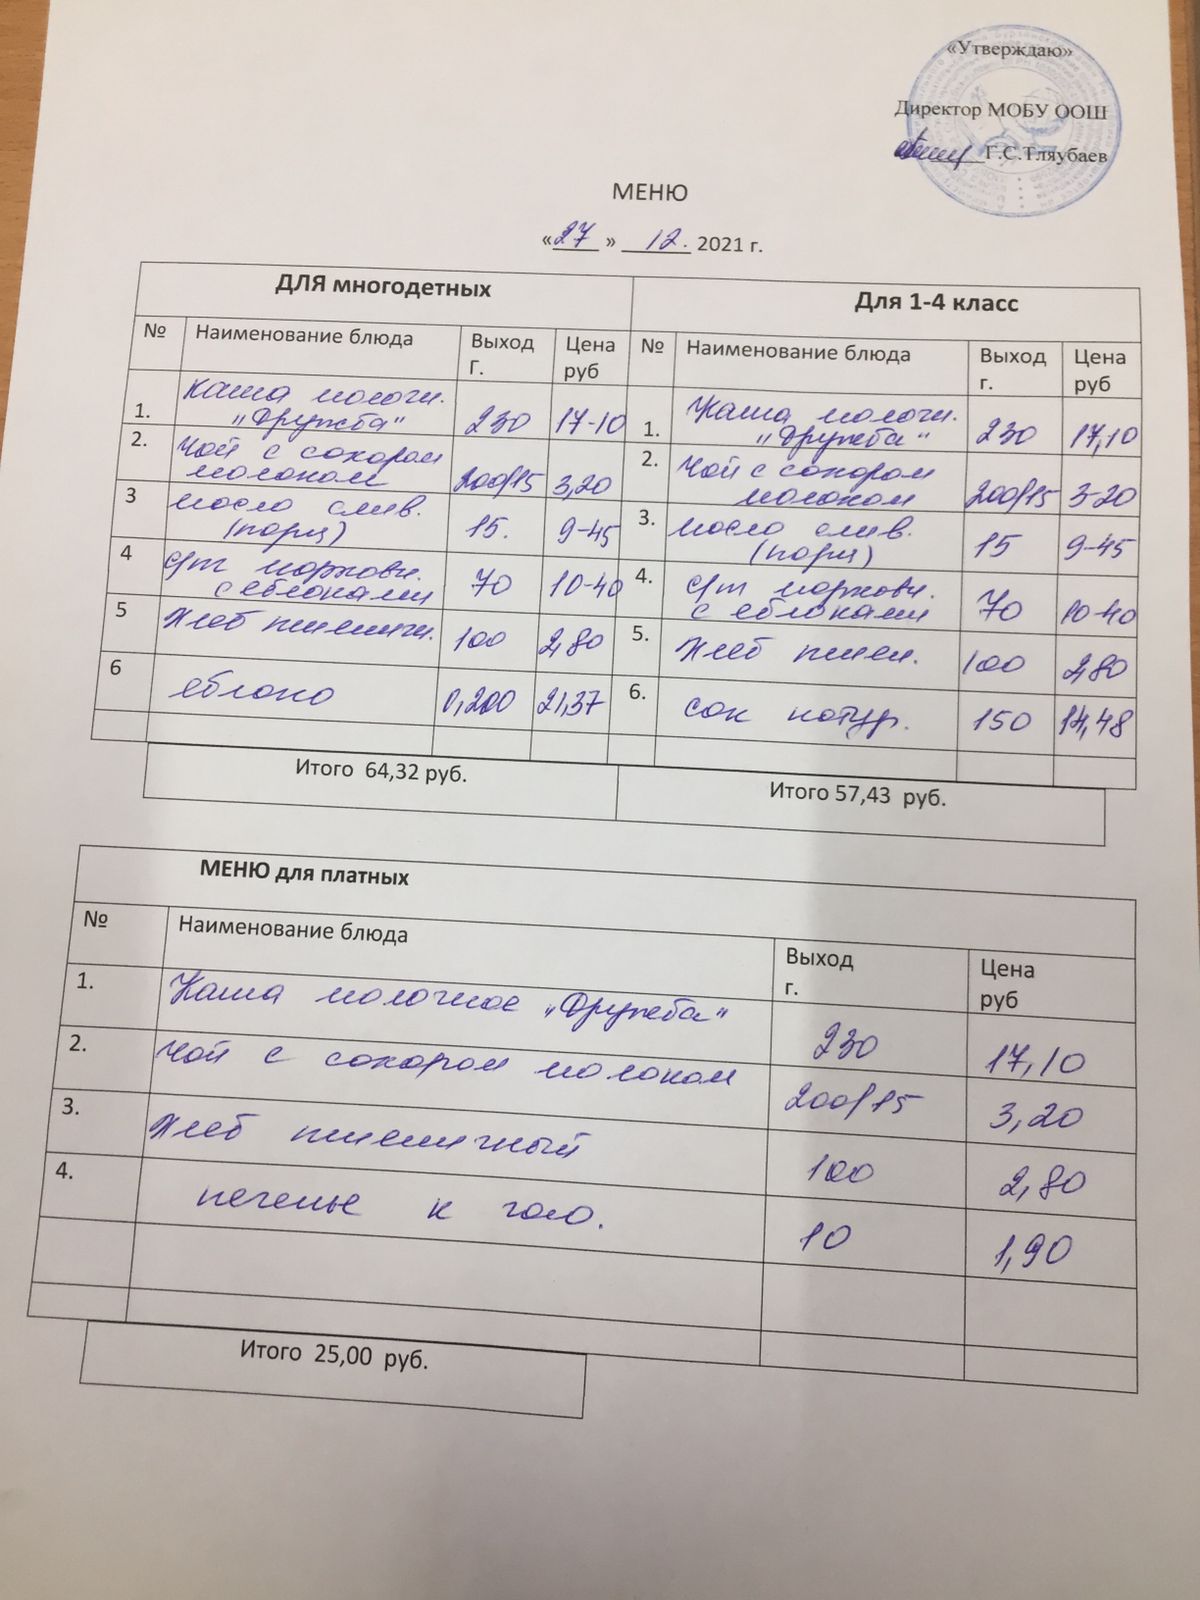 «Утверждаю»
Директор МОБУ ООШ
Г.С.Тляубаев
МЕНЮ
«27» 12. 2021 г.
ДЛЯ многодетных
№ Наименование блюда Выход г. Цена руб
1. Каша молочн. "Дружба" 230 17-10
2. Чай с сахаром молоком 200/15 3,20
3 Масло слив. (порц) 15. 9-45
4 с яблоками 70 10-40
5 Хлеб пшеничн. 100 2,80
6 яблоко 0,200 21,37
Итого 64,32 руб.
Для 1-4 класс
№ Наименование блюда Выход г. Цена руб
1. Каша молочн. "Дружба" 230 17,10
2. Чай с сахаром молоком 200/15 3-20
3. Масло слив. (порц) 15 9-45
4. с яблоками 70 10-40
5. Хлеб пшен. 100 2,80
6. сок натур. 150 14,48
Итого 57,43 руб.
МЕНЮ для платных
№ Наименование блюда Выход г. Цена руб
1. Каша молочное "Дружба" 230 17,10
2. Чай с сахаром молоком 200/15 3,20
3. Хлеб пшеничный 100 2,80
4. печенье к чаю. 10 1,90
Итого 25,00 руб.